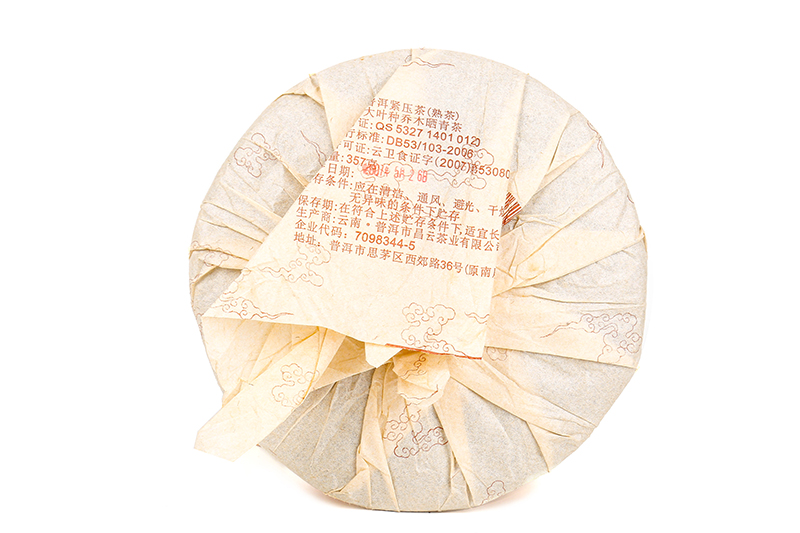 洱紧压茶(熟茶)
大叶种乔木晒青茶
证: QS 5327 1401 0120
行标准: DB53/103-2006
可证: 云卫食证字(2007)第53080
量: 357克
日期:
存条件: 应在清洁、通风、避光、干燥
无异味的条件下贮存
保存期: 在符合上述贮存条件下,适宜长
生产商: 云南·普洱市昌云茶业有限公司
企业代码: 7098344-5
地址: 普洱市思茅区西郊路36号(原南